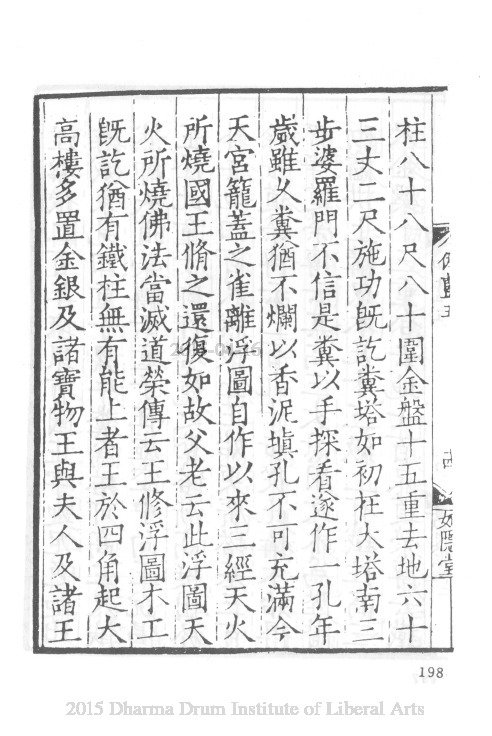 柱八十八尺八十圍金盤十五重去地六十
三丈二尺施功旣訖糞塔如初在大塔南三
步婆羅門不信是糞以手探看遂作一孔年
歲雖久糞猶不爛以香泥塡孔不可充滿今
天宮籠蓋之雀離浮圖自作以來三經天火
所燒國王脩之還復如故父老云此浮圖天
火所燒佛法當滅道榮傳云王修浮圖木工
旣訖猶有鐵柱無有能上者王於四角起大
高樓多置金銀及諸寶物王與夫人及諸王
如隱堂
198
2015 Dharma Drum Institute of Liberal Arts